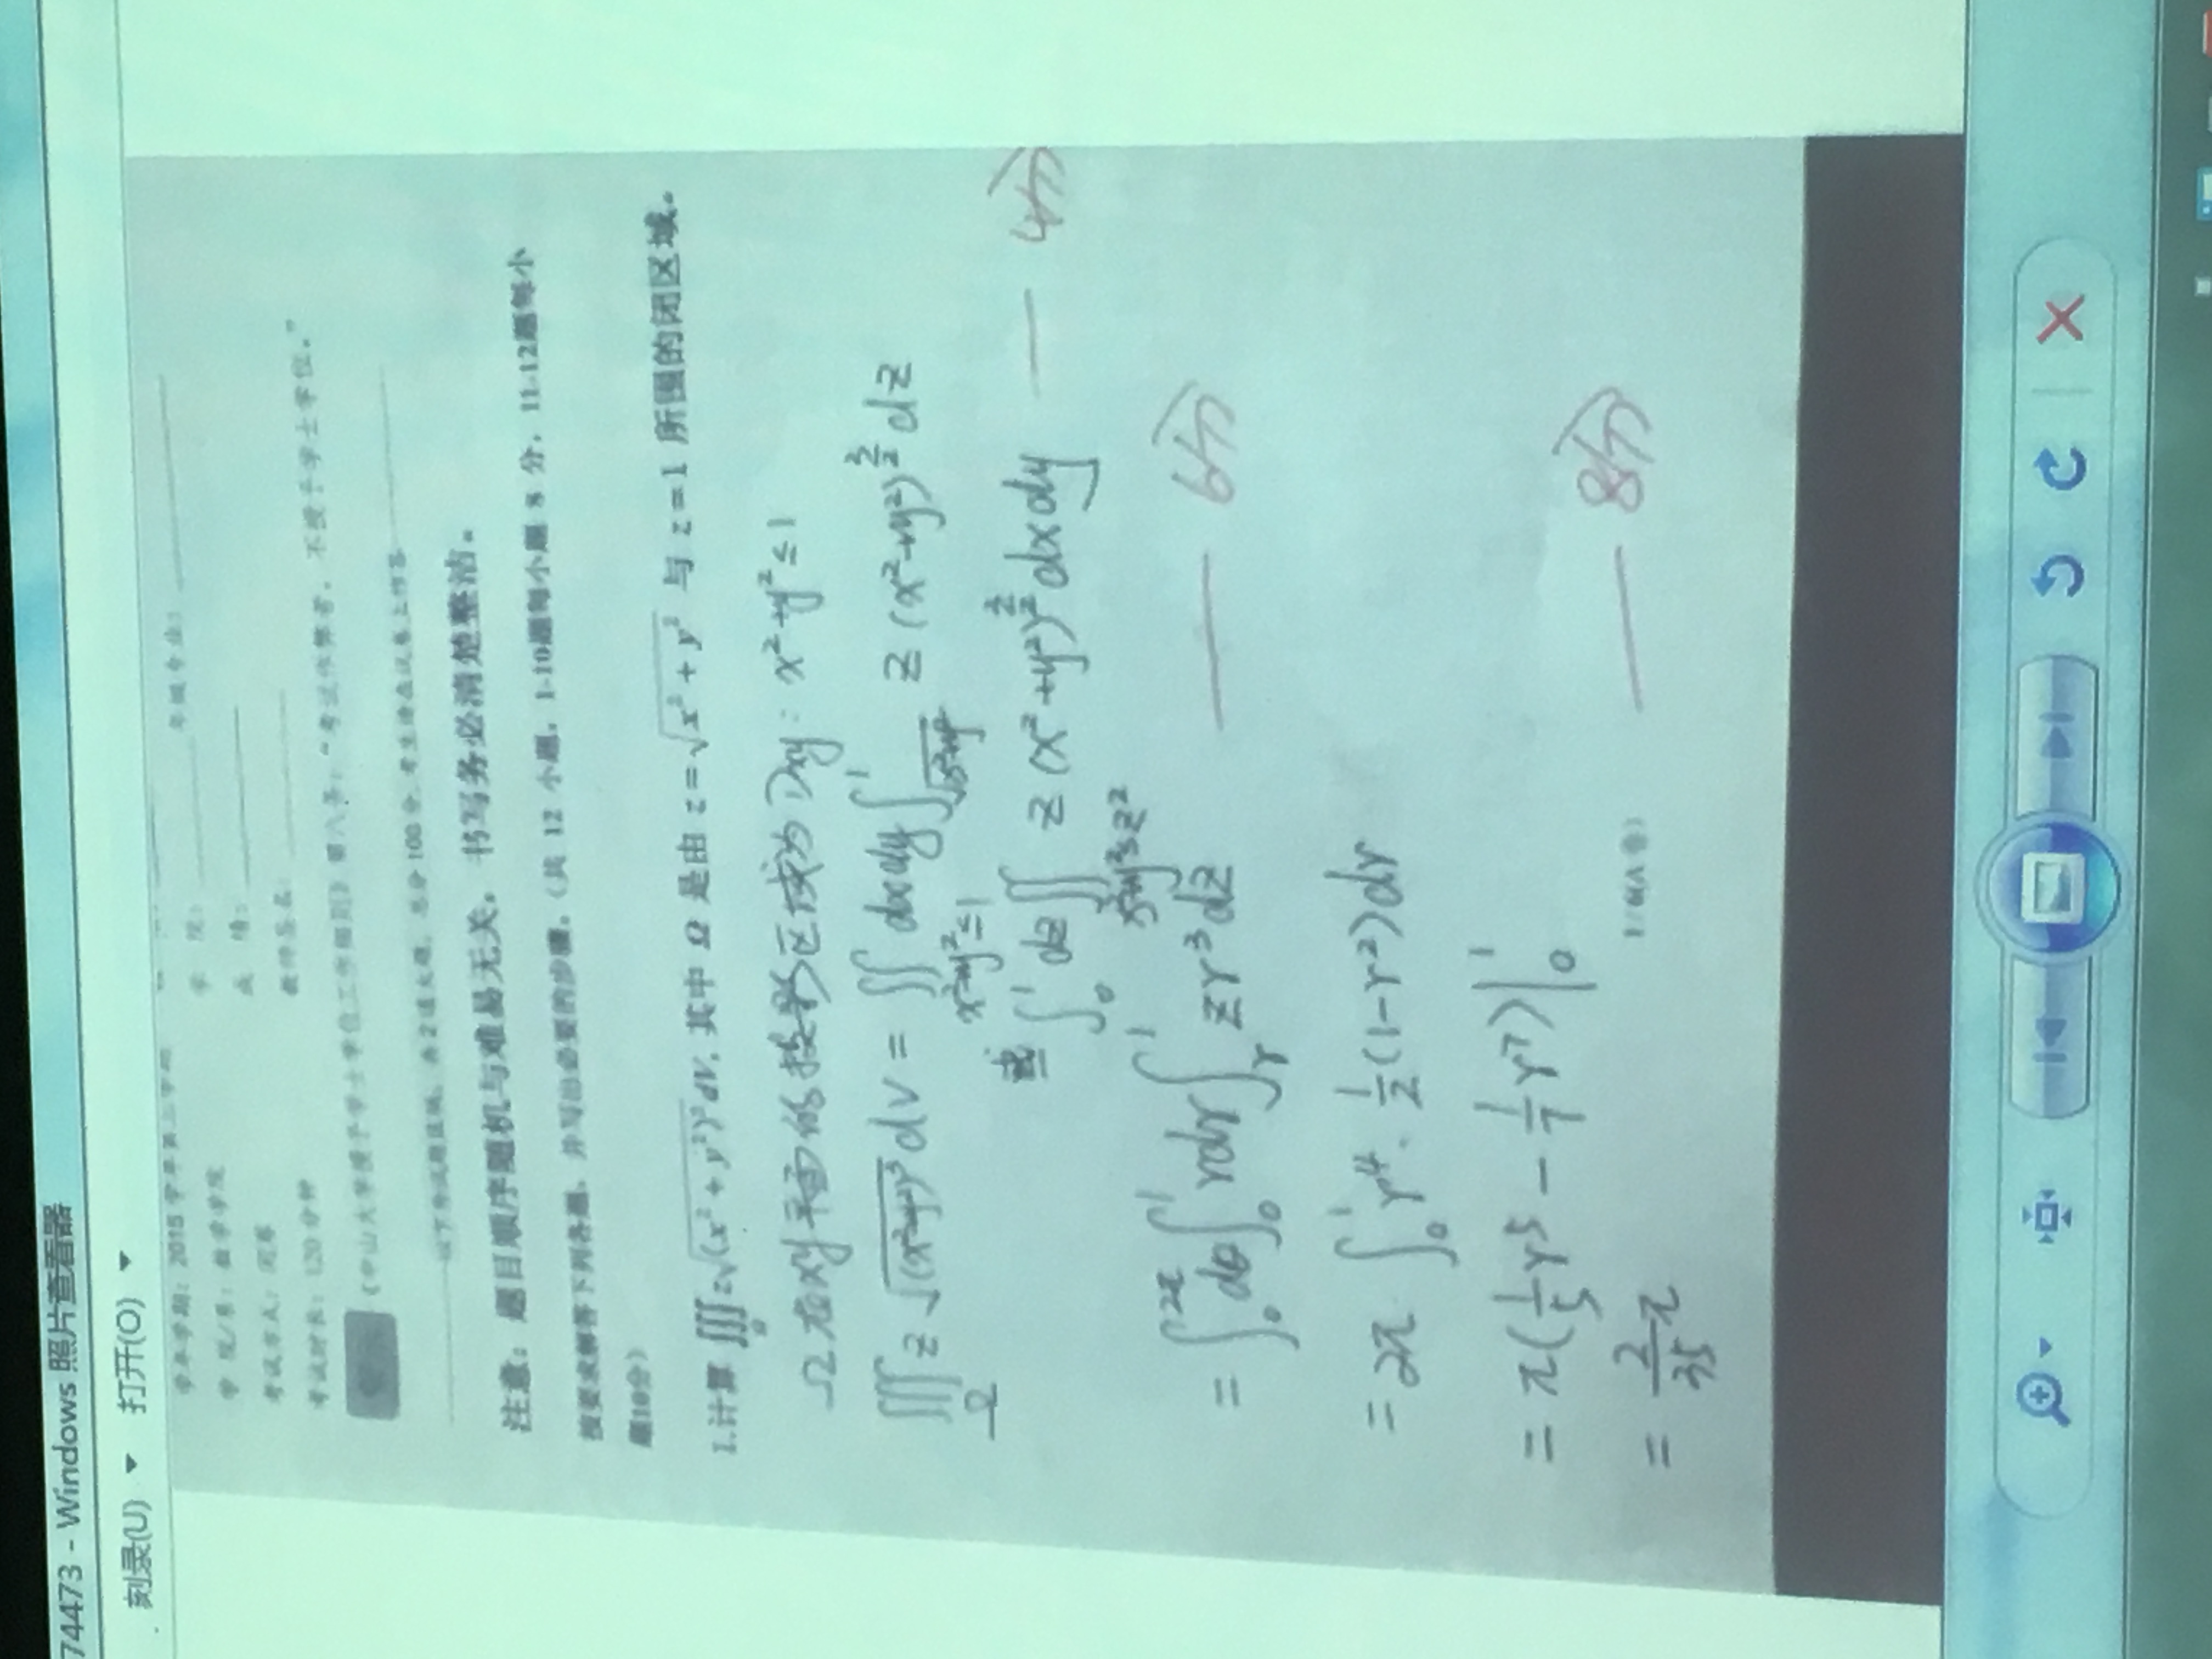 74473 - Windows 照片查看器
刻录(U) 打开(O)
学年学期：2015 学年第二学期
学 院： 年级专业：
学 院/系：数学学院
成 绩：
考试方式：闭卷
教师签名：
考试时长：120 分钟
《中山大学授予学士学位工作细则》第八条：“考试作弊者，不授予学士学位。”
以下为试题区域，共2道大题，总分100分,考生请在试卷上作答
注意：题目顺序随机与难易无关，书写务必清楚整洁。
按要求解答下列各题，并写出必要的步骤。（共 12 小题，1-10题每小题 8 分，11-12题每小
题10分）
1.计算 ∭_Ω z√((x²+y²)³)dV, 其中 Ω 是由 z=√(x²+y²) 与 z=1 所围的闭区域。
Ω在xy平面的投影区域为Dxy：x²+y²≤1
∭_Ω z√((x²+y²)³) dV = ∬_{x²+y²≤1} dxdy ∫_{√(x²+y²)}^1 z(x²+y²)^{3/2} dz
或= ∫_0^1 dz ∬_{x²+y²≤z²} z(x²+y²)^{3/2} dxdy — 4分
= ∫_0^{2π} dθ ∫_0^1 rdr ∫_r^1 zr³dz — 6分
= 2π ∫_0^1 r⁴·½(1-r²)dr
= π(1/5 r⁵ - 1/7 r⁷)|_0^1
= 2/35 π — 8分
1/6(A卷)